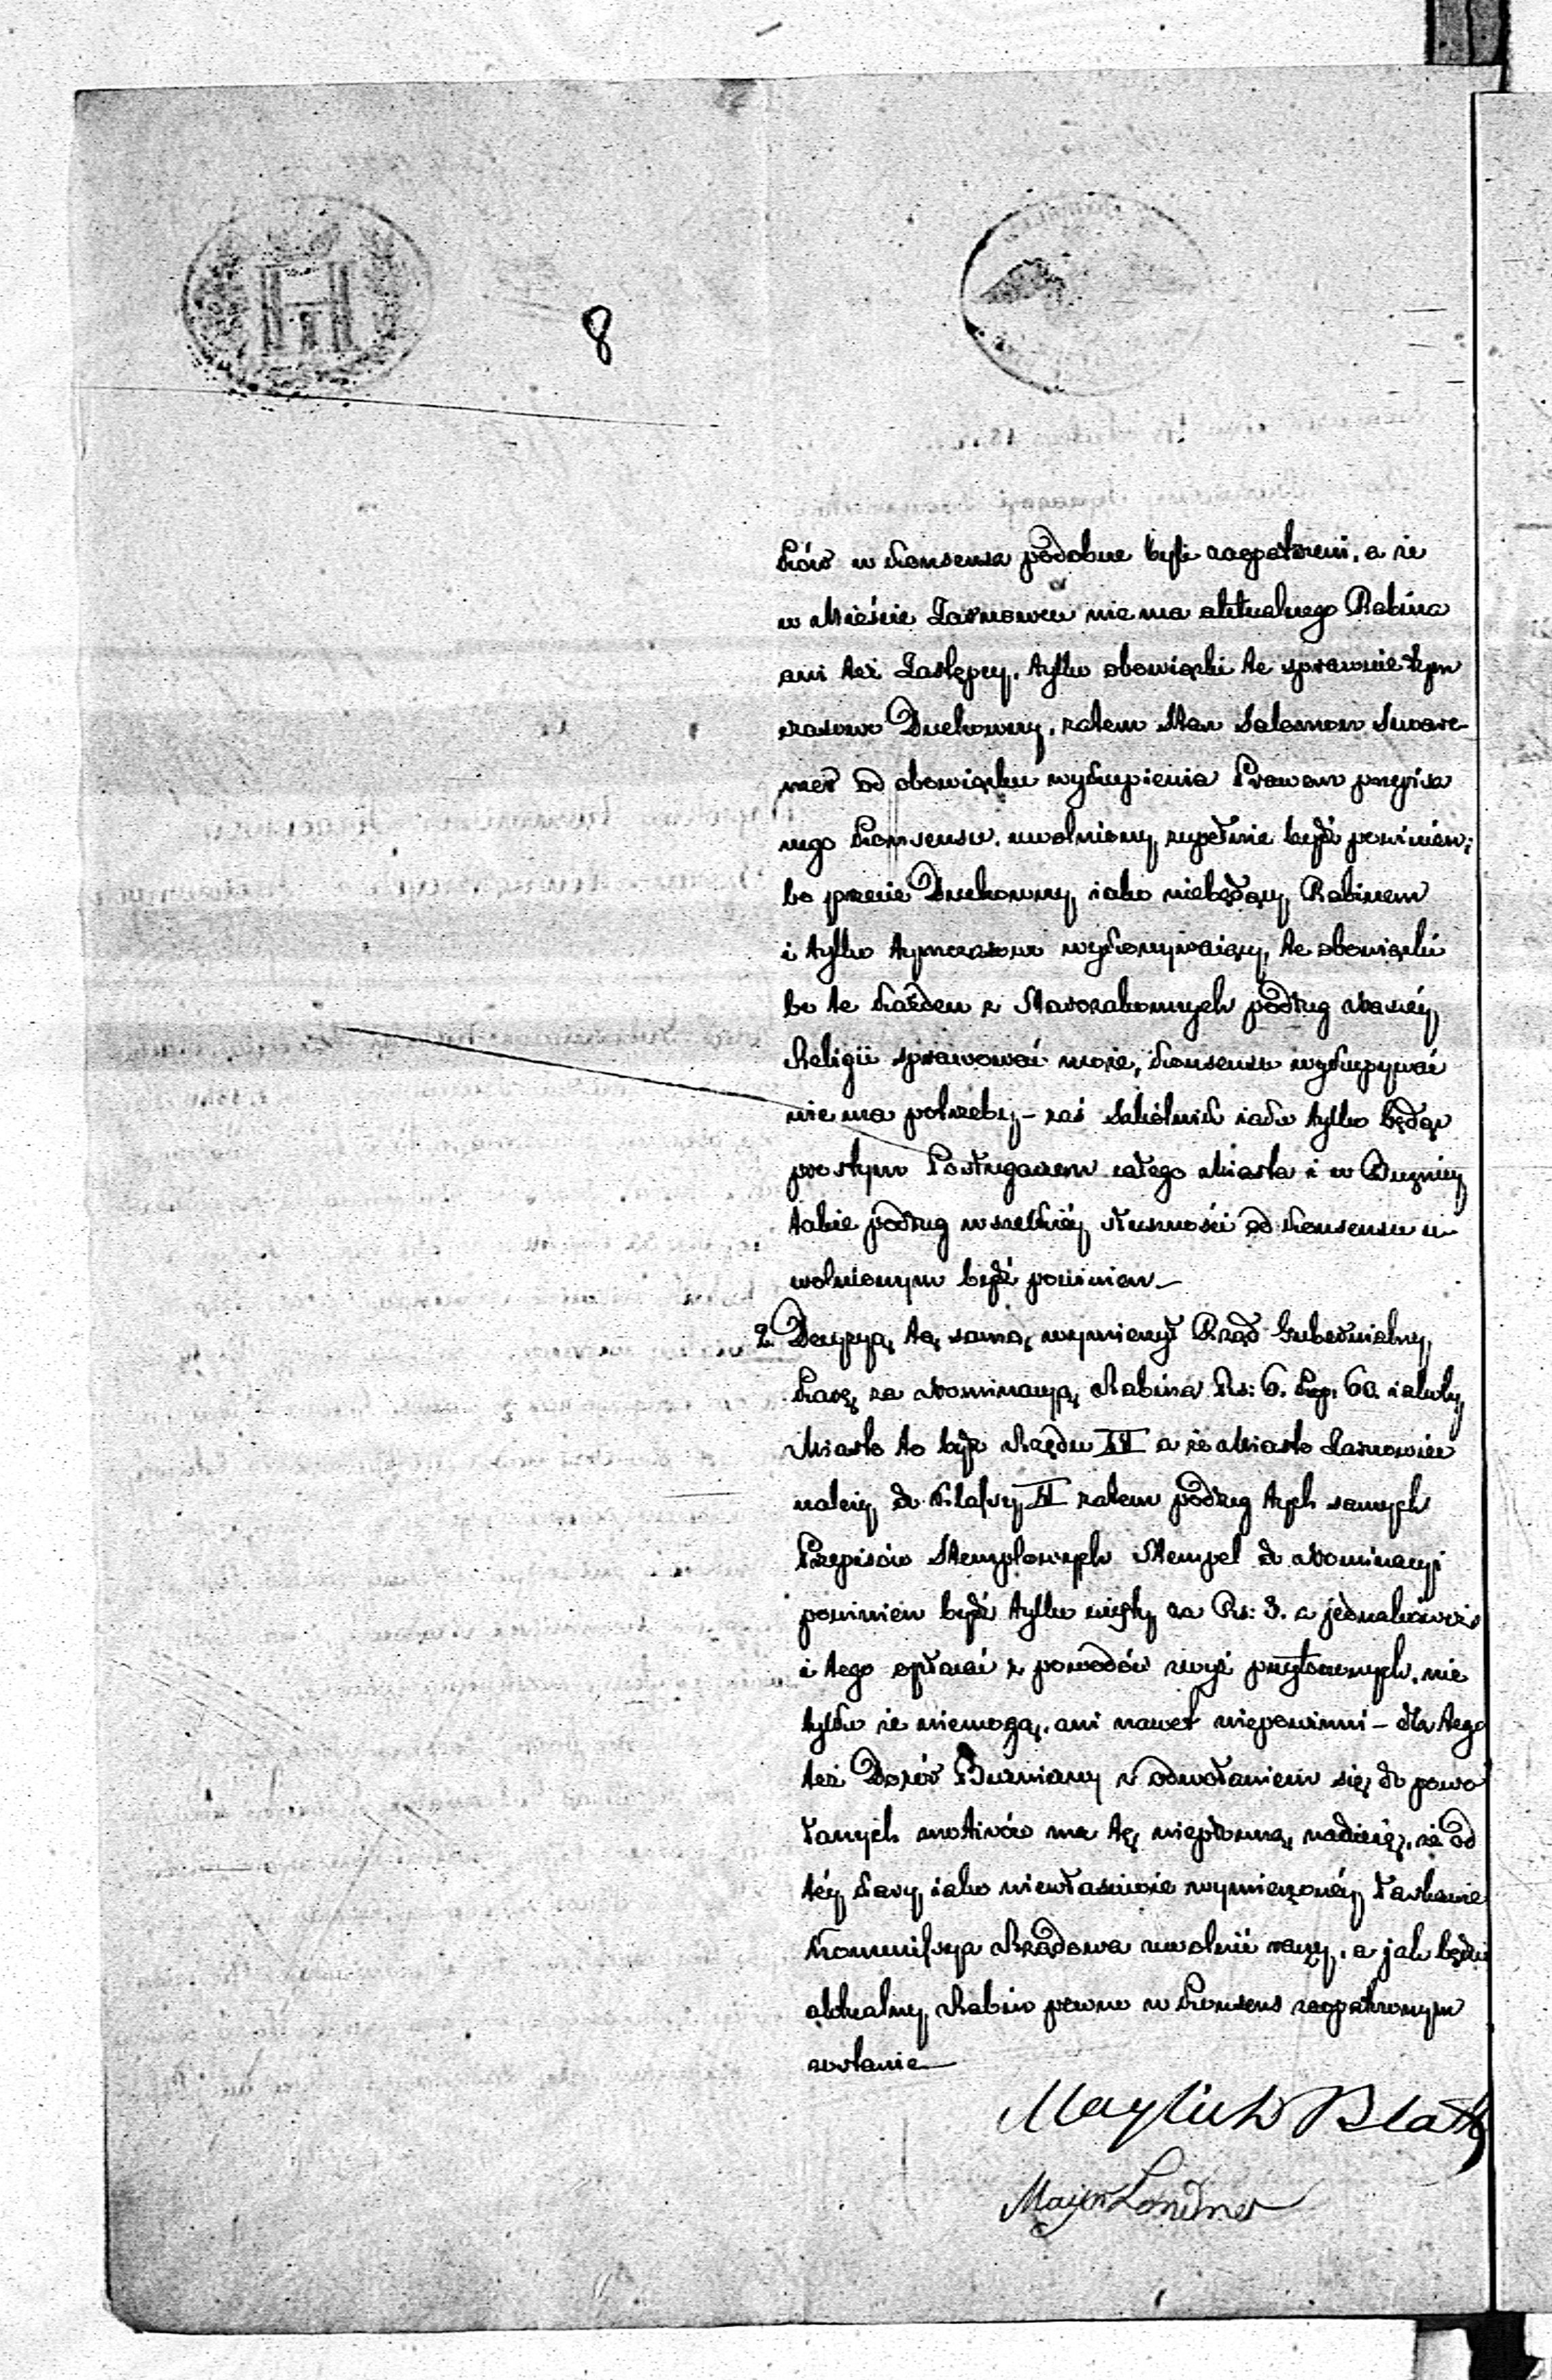 8
ków w konsensa podobne byli zaopatrzeni, a że
w Mieście Żarnowcu nie ma aktualnego Rabina
ani też Zastępcy, tylko obowiązki te sprawuie tym
czasowo Duchowny, zatem Stan Salomon
od obowiązku wykupienia Prawem przepisa
nego Konsensu, uwolniony zupełnie bydź powinien;
bo przecie Duchowny iako niebędący Rabinem
i tylko tymczasowo wykonywaiący, te obowiązki
bo te każden z Starozakonnych podług naszéj
Religii sprawować może, konsensu wykupywać
nie ma potrzeby – zaś Szkólnik iako tylko będąc
prostym Posługaczem całego Miasta i w Bużnicy
takie podług wszelkiéj słuszności od konsensu u-
wolnionym bydź powinien –
2. Decyzyą tą samą wymierzył Rząd Gubernialny,
karę za Nominacyą Rabina Rs: 6. kop. 60. iakoby
Miasto to było Rzędu III a że Miasto Żarnowiec
należy do Klassy II zatem podług tych samych
Przepisów Stemplowych Stempel do Nominacyi
powinien bydź tylko użyty za Rs: 3. a jednakowoż
i tego opłacać z powodów wyż przytoczonych, nie
tylko że niemogą, ani nawet niepowinni – dla tego
też Dozór Bużniczny z odwołaniem się do powo
łanych motivów ma tę niepłonną nadzieię, że od
téj kary iako niewłaściwie wymierzonéj Łaskawie
Kommissya Rządowa uwolnić raczy, a jak będzie
aktualny Rabin pewno w Konsens zaopatrzonym
zostanie –
Blatt
Majer Londner